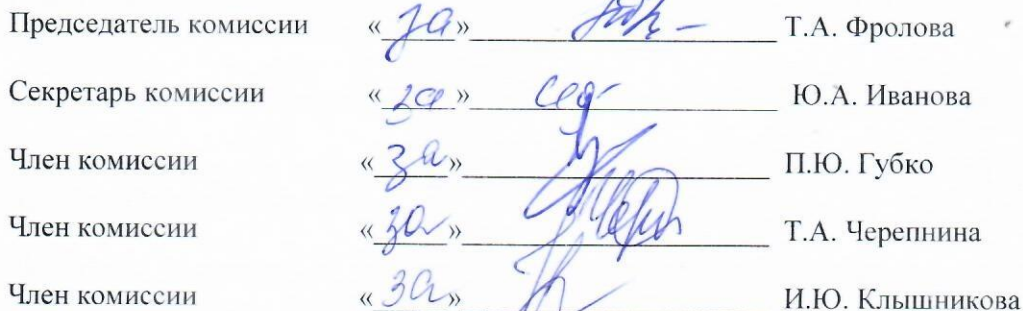 Председатель комиссии «за» Т.А. Фролова
Секретарь комиссии «за» Ю.А. Иванова
Член комиссии «за» П.Ю. Губко
Член комиссии «за» Т.А. Черепнина
Член комиссии «за» И.Ю. Клышникова